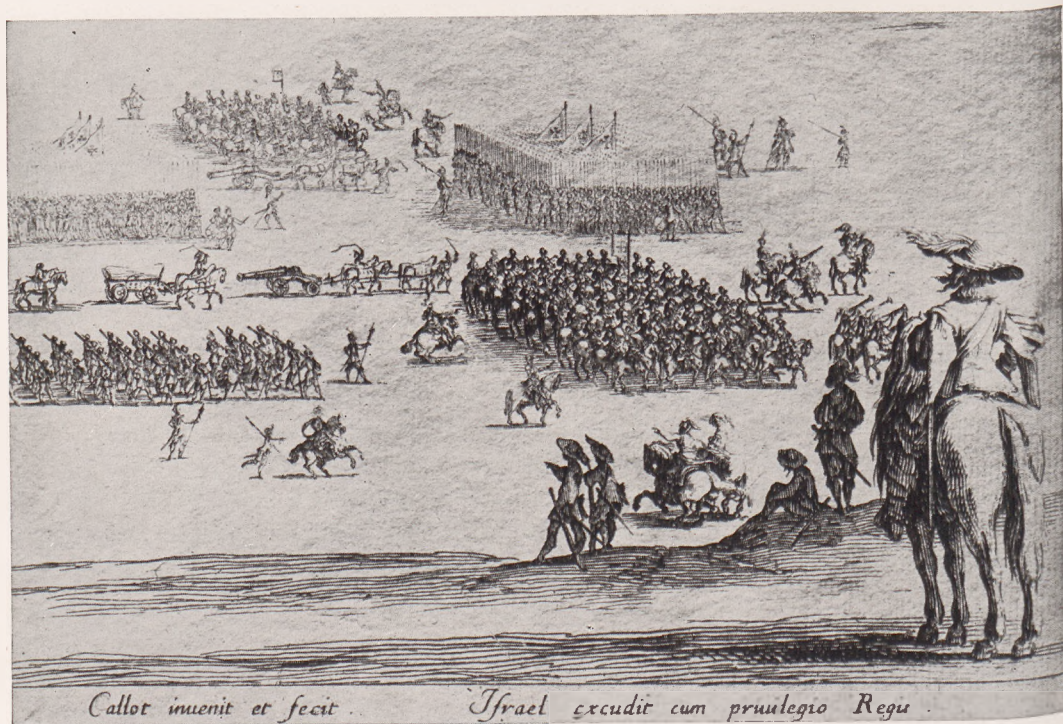 Callot inuenit et fecit . Israel excudit cum priuilegio Regis .